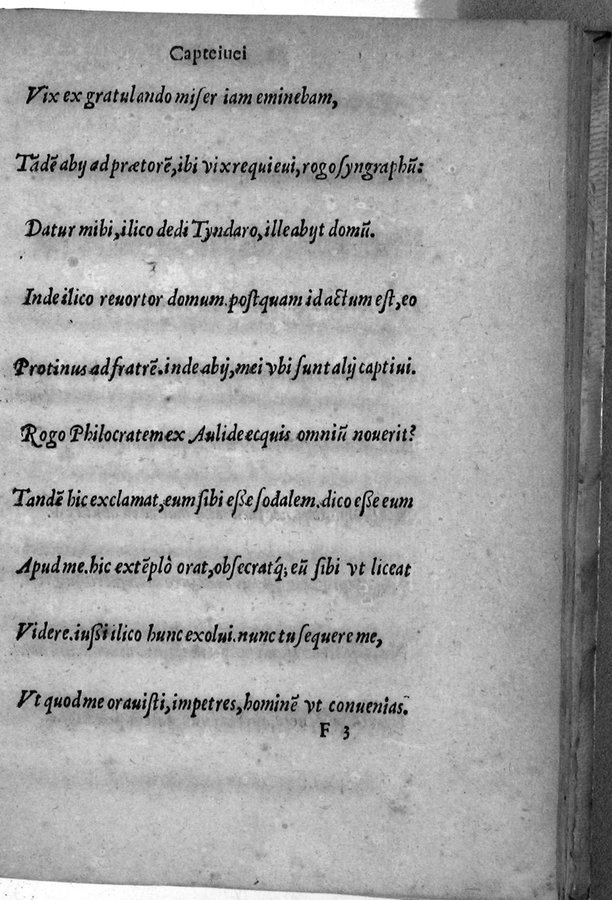 Capteiuei
Vix ex gratulando miſer iam eminebam,
Tādē abij ad prætorē, ibi vix requieui, rogo ſyngraphū:
Datur mihi, ilico dedi Tyndaro, ille abijt domū.
Inde ilico reuortor domum. poſtquam id actum eſt, eo
Protinus ad fratrē. inde abij, mei vbi ſunt alij captiui.
Rogo Philocratem ex Aulide ecquis omniū nouerit?
Tandē hic exclamat, eum ſibi eße ſodalem. dico eße eum
Apud me. hic extēplò orat, obſecratq́; eū ſibi vt liceat
Videre. iußi ilico hunc exolui. nunc tu ſequere me,
Vt quod me orauiſti, impetres, hominē vt conuenias.
F 3